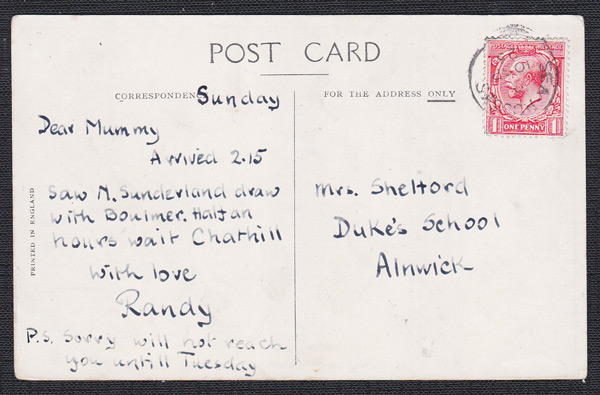 POST CARD
CORRESPONDEN
FOR THE ADDRESS ONLY
Sunday
Dear Mummy
Arrived 2.15
Saw N. Sunderland draw
with Boulmer. Half an
hours wait Chathill
with love
Randy
P.S. Sorry will not reach
you untill Tuesday
PRINTED IN ENGLAND
Mrs. Shelford
Duke's School
Alnwick
POSTAGE REVENUE
1 ONE PENNY 1